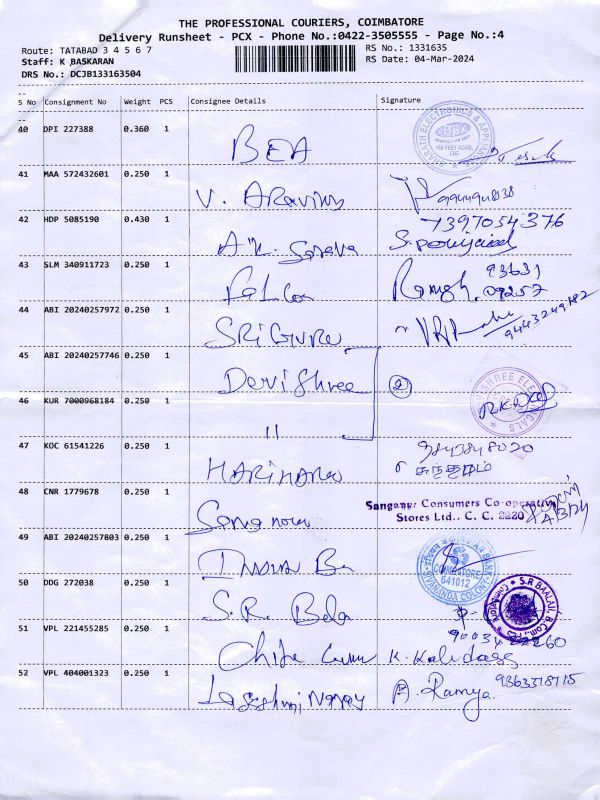 THE PROFESSIONAL COURIERS, COIMBATORE
Delivery Runsheet - PCX - Phone No.:0422-3505555 - Page No.:4
Route: TATABAD 3 4 5 6 7
RS No.: 1331635
Staff: K BASKARAN
RS Date: 04-Mar-2024
DRS No.: DCJB133163504
S No Consignment No Weight PCS Consignee Details Signature
40 DPI 227388 0.360 1
BEA
41 MAA 572432601 0.250 1
V. Aravind
42 HDP 5085190 0.430 1
7397054376
43 SLM 340911723 0.250 1
Ramesh. 93631
09257
44 ABI 20240257972 0.250 1
SRI GURU
9443249182
45 ABI 20240257746 0.250 1
Devi Shree
2
46 KUR 7000968184 0.250 1
"
47 KOC 61541226 0.250 1
HARIHARA
48 CNR 1779678 0.250 1
Sanganur Consumers Co-operative
Stores Ltd., C. C. 2220
49 ABI 20240257803 0.250 1
COIMBATORE
641012
SIVANANDA COLONY
50 DDG 272038 0.250 1
S.R. Bala
S.R BAALAJI, B.Com.,
51 VPL 221455285 0.250 1
K. Kalidass
52 VPL 404001323 0.250 1
Lakshmi Naray A. Ramya